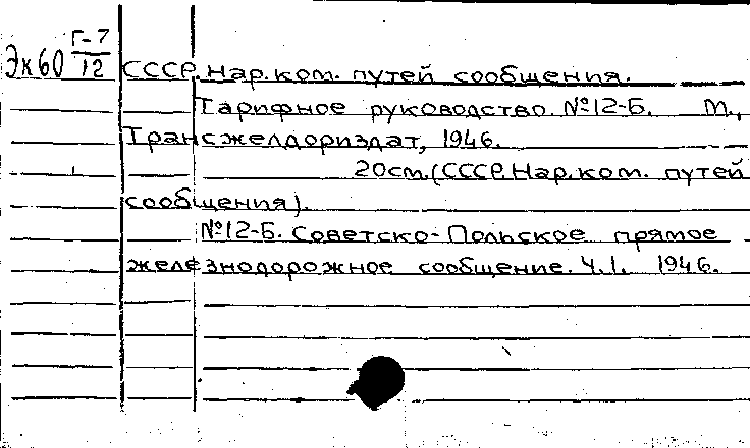 Эк60 Г-7/12
СССР. Нар.ком. путей сообщения.
Тарифное руководство. №12-Б. М.,
Трансжелдориздат, 1946.
20см. (СССР. Нар.ком. путей
сообщения).
№12-Б. Советско-Польское прямое
железнодорожное сообщение. Ч.I. 1946.